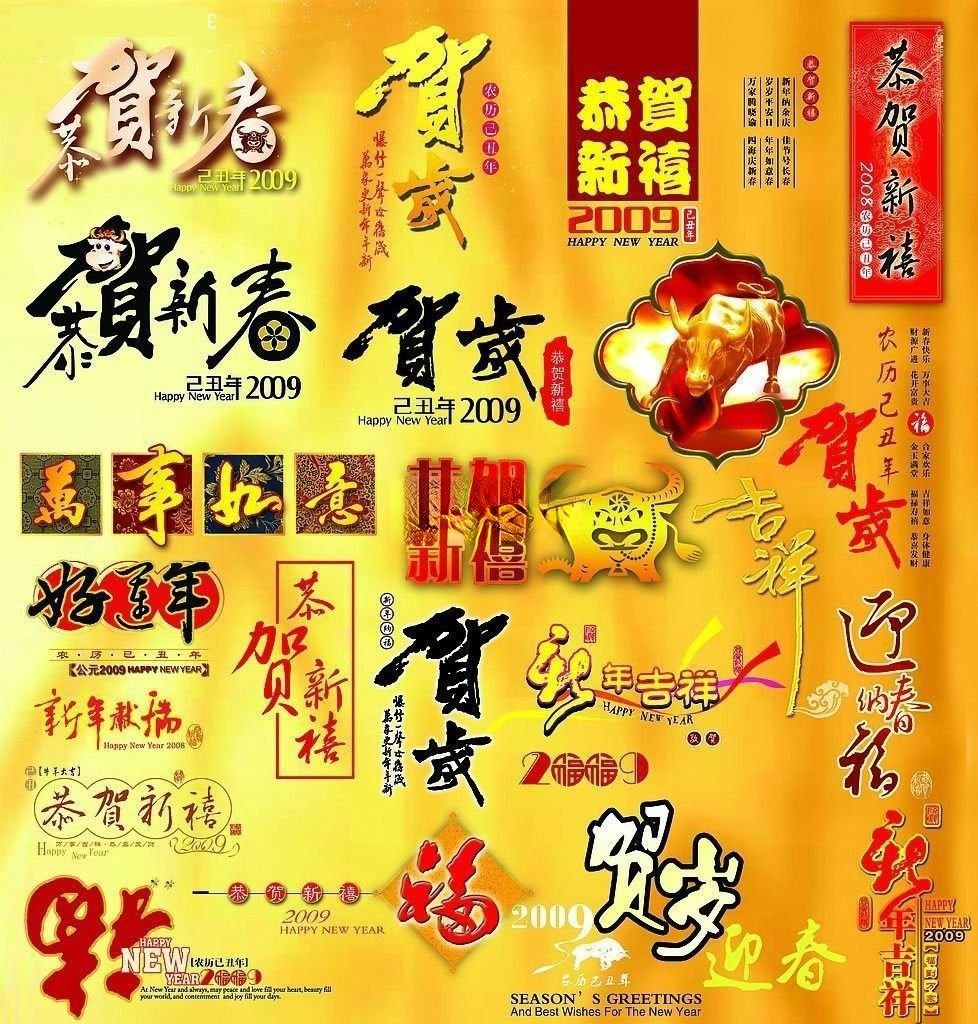 恭賀新春
己丑年
Happy New Year 2009
賀歲
农历己丑年
爆竹一聲除舊歲
萬象更新年年新
恭賀
新禧
2009
己丑年
HAPPY NEW YEAR
恭贺新禧
新年纳余庆
岁岁平安日
万家腾晓谕
佳节号长春
年年如意春
四海庆新春
恭贺新禧
2008农历己丑年
恭賀新春
己丑年
Happy New Year 2009
贺歲
恭贺新禧
己丑年
Happy New Year 2009
农历己丑年
贺歲
新春快乐 万事大吉
财源广进 花开富贵
福
合家欢乐 吉祥如意 身体健康
金玉满堂 福禄寿禧 恭喜发财
萬事如意
恭贺
新禧
吉祥
好運年
农·历·己·丑·年
【公元2009 HAPPY NEW YEAR】
恭贺新禧
新年纳福
贺歲
爆竹一聲除舊歲
萬象更新年年新
新年吉祥
HAPPY NEW YEAR
致贺
迎春
纳福
新年献瑞
Happy New Year 2008
2福福9
【牛年大吉】
恭賀新禧
Happy New Year
2009
恭贺新禧
2009
HAPPY NEW YEAR
福
贺岁
2009
农历己丑年
迎春
SEASON'S GREETINGS
And Best Wishes For The New Year
新年吉祥
HAPPY
NEW YEAR
2009
HAPPY
NEW
YEAR
[农历己丑年]
2福福9
At New Year and always, may peace and love fill your heart, beauty fill
your world, and contentment and joy fill your days.